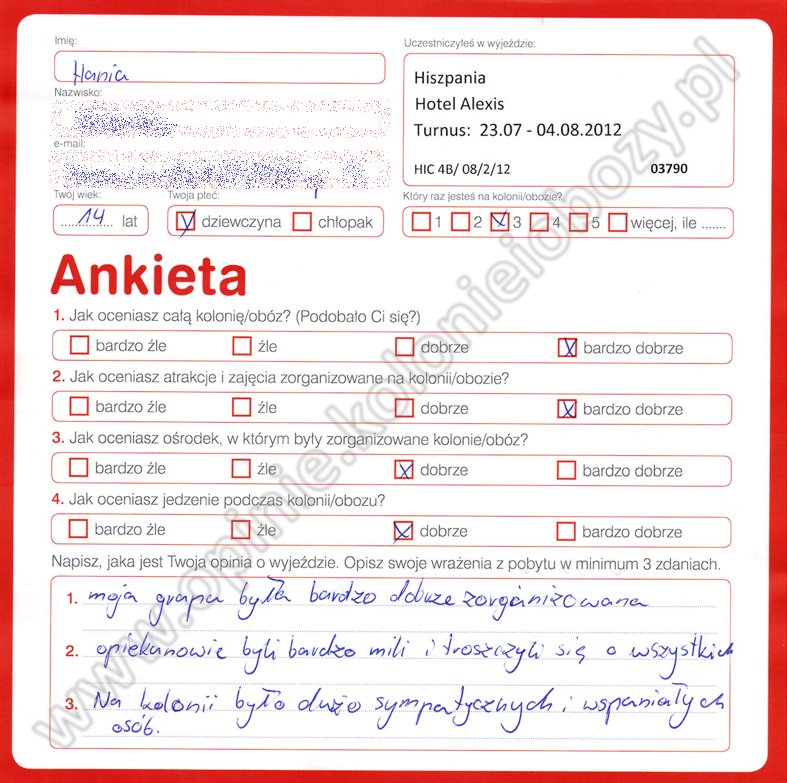 Imię:
Hania
Uczestniczyłeś w wyjeździe:
Hiszpania
Hotel Alexis
Turnus: 23.07 - 04.08.2012
HIC 4B/ 08/2/12 03790
Nazwisko:
e-mail:
Twój wiek:
14 lat
Twoja płeć:
dziewczyna chłopak
Który raz jesteś na kolonii/obozie?
1 2 3 4 5 więcej, ile .......
Ankieta
1. Jak oceniasz całą kolonię/obóz? (Podobało Ci się?)
bardzo źle źle dobrze bardzo dobrze
2. Jak oceniasz atrakcje i zajęcia zorganizowane na kolonii/obozie?
bardzo źle źle dobrze bardzo dobrze
3. Jak oceniasz ośrodek, w którym były zorganizowane kolonie/obóz?
bardzo źle źle dobrze bardzo dobrze
4. Jak oceniasz jedzenie podczas kolonii/obozu?
bardzo źle źle dobrze bardzo dobrze
Napisz, jaka jest Twoja opinia o wyjeździe. Opisz swoje wrażenia z pobytu w minimum 3 zdaniach.
1. moja grupa była bardzo dobrze zorganizowana
2. opiekunowie byli bardzo mili i troszczyli się o wszystkich
3. Na kolonii było dużo sympatycznych i wspaniałych
osób.
www.opinie.kolonieiobozy.pl